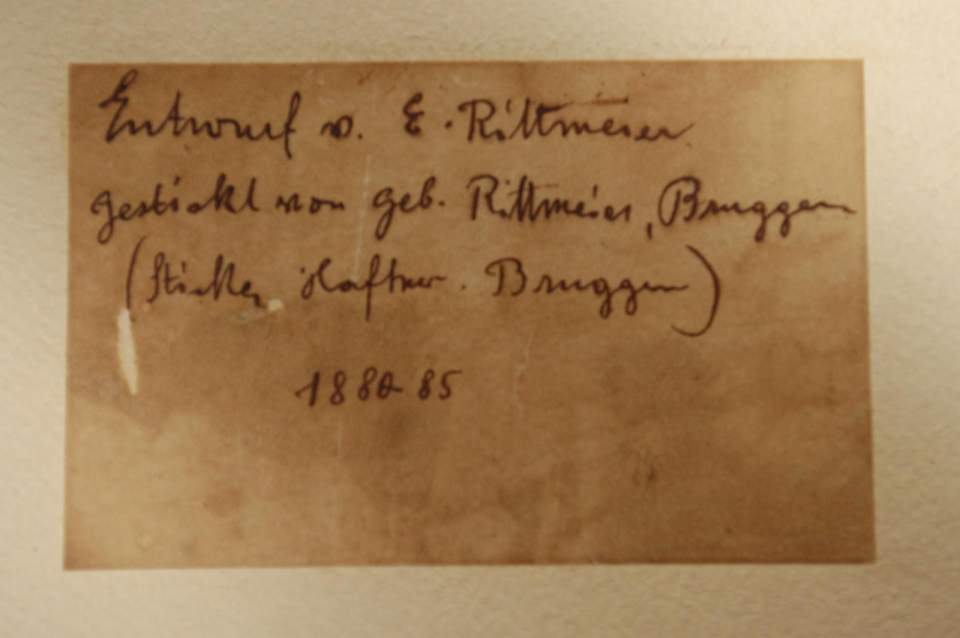 Entwurf v. E. Rittmeier
gestickt von Geb. Rittmeier, Bruggen
(Sticker Haftner. Bruggen)
1880-85